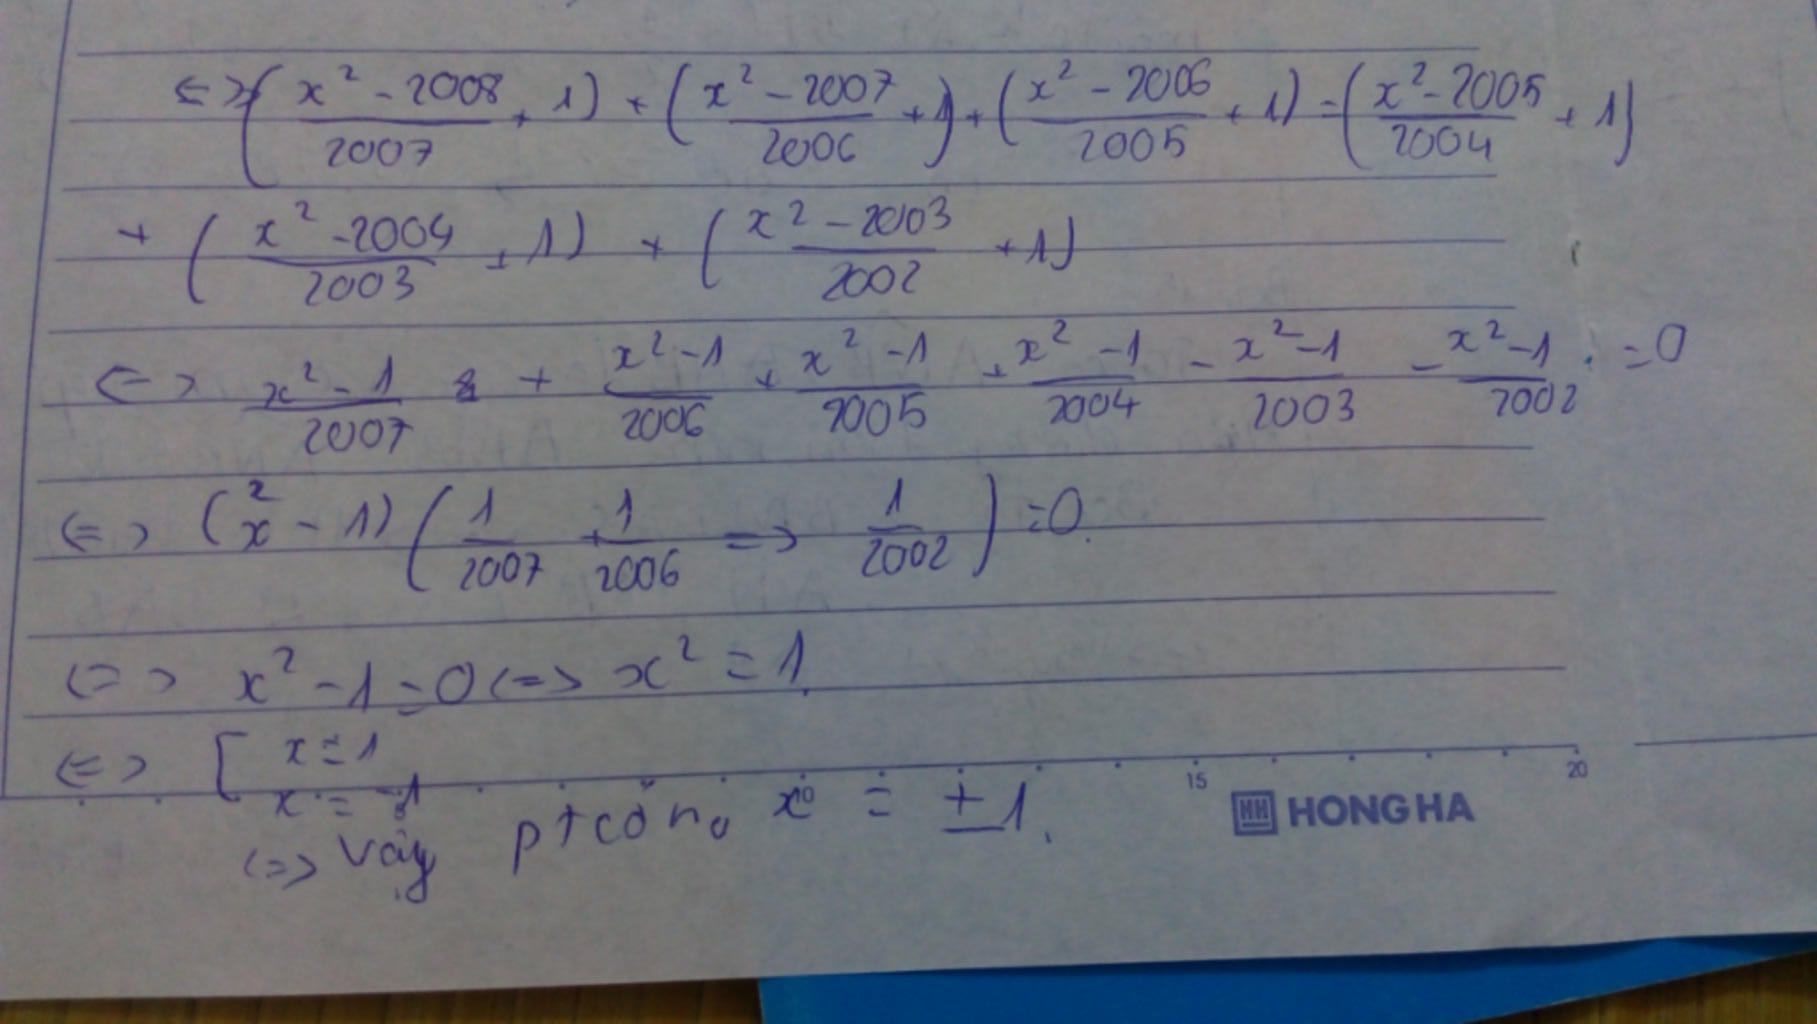 <=> (x² - 2008 / 2007 + 1) + (x² - 2007 / 2006 + 1) + (x² - 2006 / 2005 + 1) = (x² - 2005 / 2004 + 1)
+ (x² - 2004 / 2003 + 1) + (x² - 2003 / 2002 + 1)
<=> x² - 1 / 2007 + x² - 1 / 2006 + x² - 1 / 2005 - x² - 1 / 2004 - x² - 1 / 2003 - x² - 1 / 2002 = 0
<=> (x² - 1) (1 / 2007 + 1 / 2006 => 1 / 2002) = 0.
<=> x² - 1 = 0 <=> x² = 1
<=> [ x = 1
x = -1
<=> vậy pt có n₀ x = ± 1.
15 20
HH HONG HA